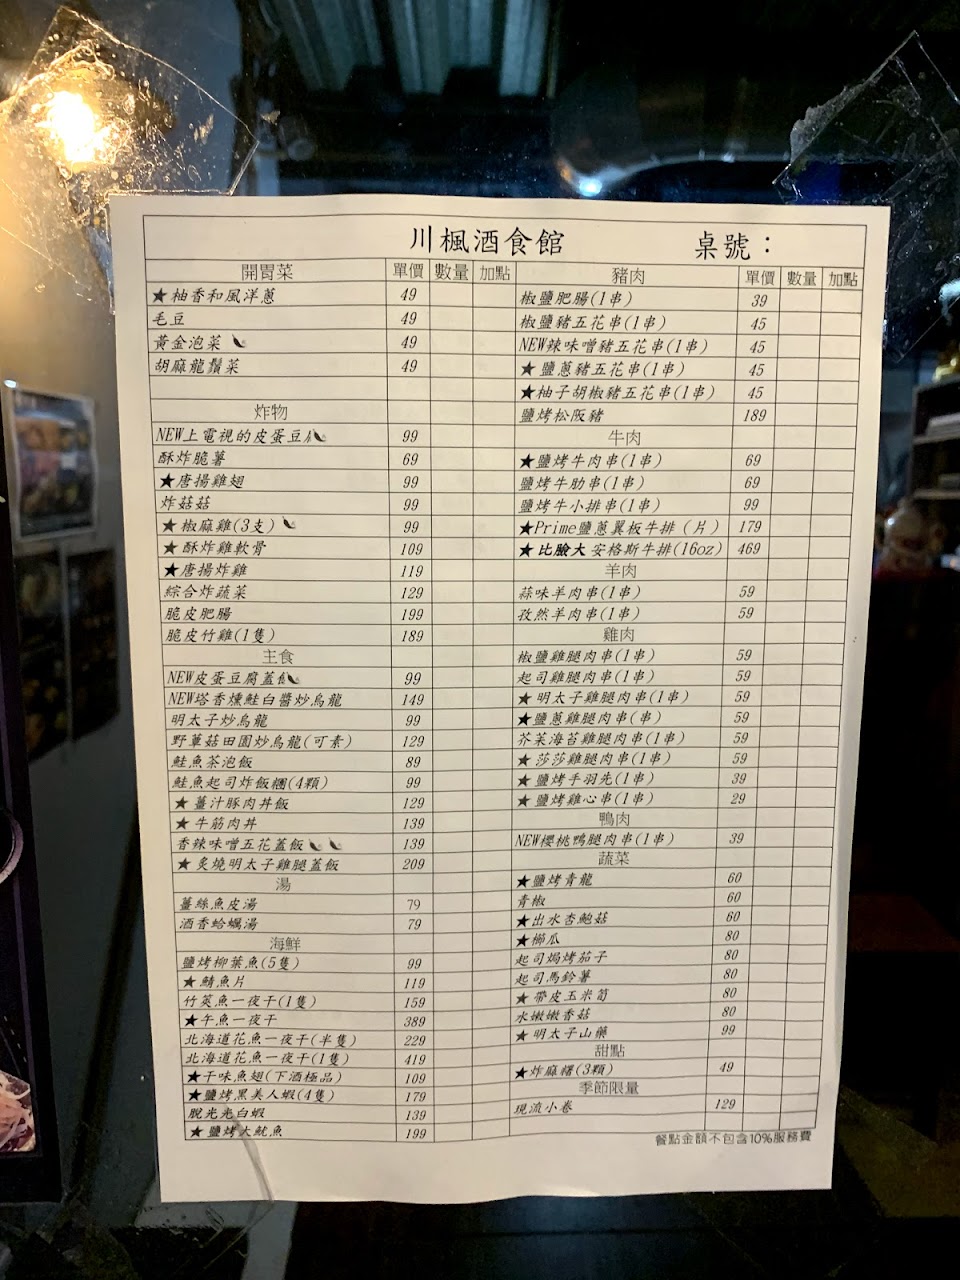 川楓酒食館 桌號：
開胃菜 單價 數量 加點
★柚香和風洋蔥 49
毛豆 49
黃金泡菜 49
胡麻龍鬚菜 49
炸物
NEW上電視的皮蛋豆 99
酥炸脆薯 69
★唐揚雞翅 99
炸菇菇 99
★椒麻雞(3支) 99
★酥炸雞軟骨 109
★唐揚炸雞 119
綜合炸蔬菜 129
脆皮肥腸 199
脆皮竹雞(1隻) 189
主食
NEW皮蛋豆腐蓋 99
NEW塔香燻鮭白醬炒烏龍 149
明太子炒烏龍 99
野蕈菇田園炒烏龍(可素) 129
鮭魚茶泡飯 89
鮭魚起司炸飯糰(4顆) 99
★薑汁豚肉丼飯 129
★牛筋肉丼 139
香辣味噌五花蓋飯 139
★炙燒明太子雞腿蓋飯 209
湯
薑絲魚皮湯 79
酒香蛤蠣湯 79
海鮮
鹽烤柳葉魚(5隻) 99
★鯖魚片 119
竹筴魚一夜干(1隻) 159
★午魚一夜干 389
北海道花魚一夜干(半隻) 229
北海道花魚一夜干(1隻) 419
★干味魚翅(下酒極品) 109
★鹽烤黑美人蝦(4隻) 179
脫光光白蝦 139
★鹽烤大魷魚 199
豬肉 單價 數量 加點
椒鹽肥腸(1串) 39
椒鹽豬五花串(1串) 45
NEW辣味噌豬五花串(1串) 45
★鹽蔥豬五花串(1串) 45
★柚子胡椒豬五花串(1串) 45
鹽烤松阪豬 189
牛肉
★鹽烤牛肉串(1串) 69
鹽烤牛肋串(1串) 69
鹽烤牛小排串(1串) 99
★Prime鹽蔥翼板牛排（片） 179
★比臉大 安格斯牛排(16oz) 469
羊肉
蒜味羊肉串(1串) 59
孜然羊肉串(1串) 59
雞肉
椒鹽雞腿肉串(1串) 59
起司雞腿肉串(1串) 59
★明太子雞腿肉串(1串) 59
★鹽蔥雞腿肉串(串) 59
芥茉海苔雞腿肉串(1串) 59
★莎莎雞腿肉串(1串) 59
★鹽烤手羽先(1串) 39
★鹽烤雞心串(1串) 29
鴨肉
NEW櫻桃鴨腿肉串(1串) 39
蔬菜
★鹽烤青龍 60
青椒 60
★出水杏鮑菇 60
★櫛瓜 80
起司焗烤茄子 80
起司馬鈴薯 80
★帶皮玉米筍 80
水嫩嫩香菇 80
★明太子山藥 99
甜點
★炸麻糬(3顆) 49
季節限量
現流小卷 129
餐點金額不包含10%服務費